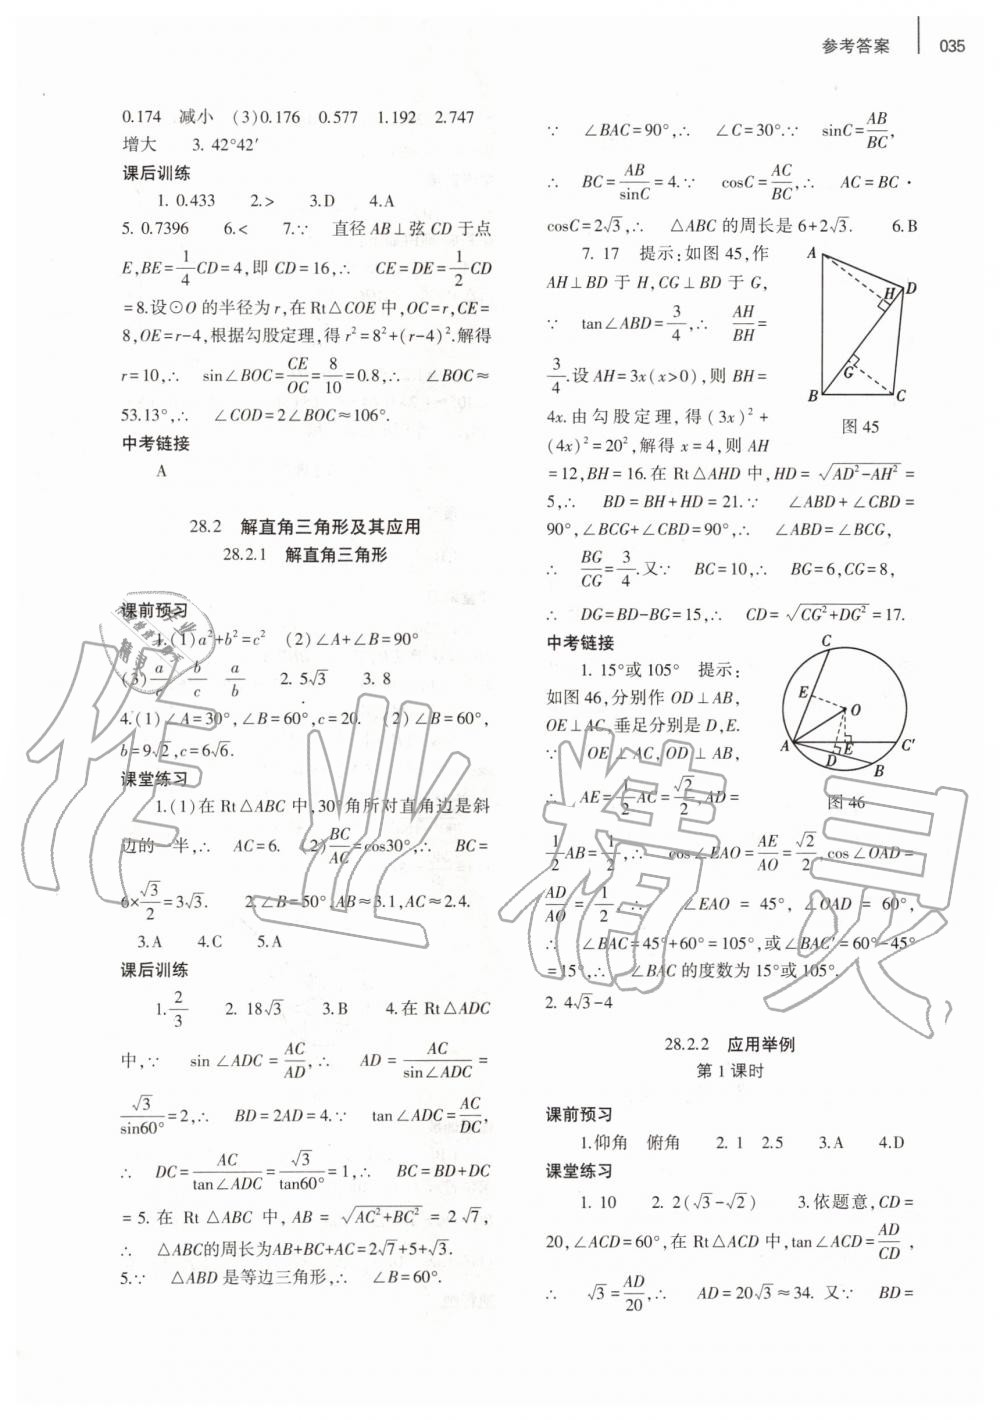 参考答案 035
0.174 减小 (3)0.176 0.577 1.192 2.747
增大 3. 42°42′
课后训练
1. 0.433 2.> 3.D 4.A
5. 0.7396 6.< 7.∵ 直径 AB⊥弦 CD 于点
E,BE=1/4CD=4,即 CD=16,∴ CE=DE=1/2CD
=8.设⊙O 的半径为 r,在 Rt△COE 中,OC=r,CE=
8,OE=r-4,根据勾股定理,得 r²=8²+(r-4)².解得
r=10,∴ sin∠BOC=CE/OC=8/10=0.8,∴ ∠BOC≈
53.13°,∴ ∠COD=2∠BOC≈106°.
中考链接
A
28.2 解直角三角形及其应用
28.2.1 解直角三角形
课前预习
1.(1)a²+b²=c² (2)∠A+∠B=90°
(3)a/c b/c a/b 2. 5√3 3. 8
4.(1)∠A=30°,∠B=60°,c=20. (2)∠B=60°,
b=9√2,c=6√6.
课堂练习
1.(1)在 Rt△ABC 中,30°角所对直角边是斜
边的一半,∴ AC=6. (2)BC/AC=cos30°,∴ BC=
6×√3/2=3√3. 2.∠B=50°,AB≈3.1,AC≈2.4.
3.A 4.C 5.A
课后训练
1.2/3 2. 18√3 3.B 4.在 Rt△ADC
中,∵ sin∠ADC=AC/AD,∴ AD=AC/sin∠ADC=
√3/sin60°=2,∴ BD=2AD=4.∵ tan∠ADC=AC/DC,
∴ DC=AC/tan∠ADC=√3/tan60°=1,∴ BC=BD+DC
=5. 在 Rt△ABC 中, AB=√(AC²+BC²)=2√7,
∴ △ABC的周长为AB+BC+AC=2√7+5+√3.
5.∵ △ABD 是等边三角形,∴ ∠B=60°.
∵ ∠BAC=90°,∴ ∠C=30°.∵ sinC=AB/BC,
∴ BC=AB/sinC=4.∵ cosC=AC/BC,∴ AC=BC·
cosC=2√3,∴ △ABC 的周长是 6+2√3. 6.B
7. 17 提示:如图 45,作
AH⊥BD 于 H,CG⊥BD 于 G,
∵ tan∠ABD=3/4,∴ AH/BH=
3/4.设 AH=3x(x>0),则 BH=
4x.由勾股定理,得(3x)²+
(4x)²=20²,解得 x=4,则 AH
=12,BH=16.在 Rt△AHD 中,HD=√(AD²-AH²)=
5,∴ BD=BH+HD=21.∵ ∠ABD+∠CBD=
90°,∠BCG+∠CBD=90°,∴ ∠ABD=∠BCG,
∴ BG/CG=3/4.又∵ BC=10,∴ BG=6,CG=8,
∴ DG=BD-BG=15,∴ CD=√(CG²+DG²)=17.
A
H
D
G
B
C
图 45
中考链接
1. 15°或 105° 提示:
如图 46,分别作 OD⊥AB,
OE⊥AC,垂足分别是 D,E.
∵ OE⊥AC,OD⊥AB,
∴ AE=1/2AC=√2/2,AD=
1/2AB=1/2,∴ cos∠EAO=AE/AO=√2/2,cos∠OAD=
AD/AO=1/2,∴ ∠EAO=45°,∠OAD=60°,
∴ ∠BAC=45°+60°=105°,或∠BAC′=60°-45°
=15°,∴ ∠BAC 的度数为 15°或 105°.
2. 4√3-4
C
E
O
A
E
C′
D
B
图 46
28.2.2 应用举例
第 1 课时
课前预习
1.仰角 俯角 2. 1 2.5 3.A 4.D
课堂练习
1. 10 2. 2(√3-√2) 3.依题意,CD=
20,∠ACD=60°,在 Rt△ACD 中,tan∠ACD=AD/CD,
∴ √3=AD/20,∴ AD=20√3≈34. 又∵ BD=
作业精灵